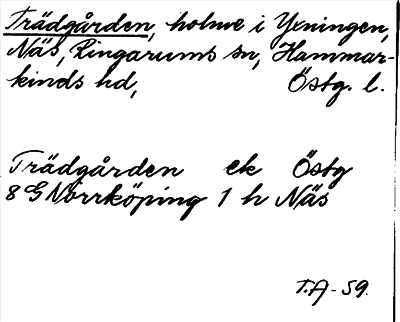 Trädgården, holme i Yxningen,
Näs, Ringarums sn, Hammar-
kinds hd, Östg. l.
Trädgården ek Östg
8 G Norrköping 1 h Näs
T.A-59.